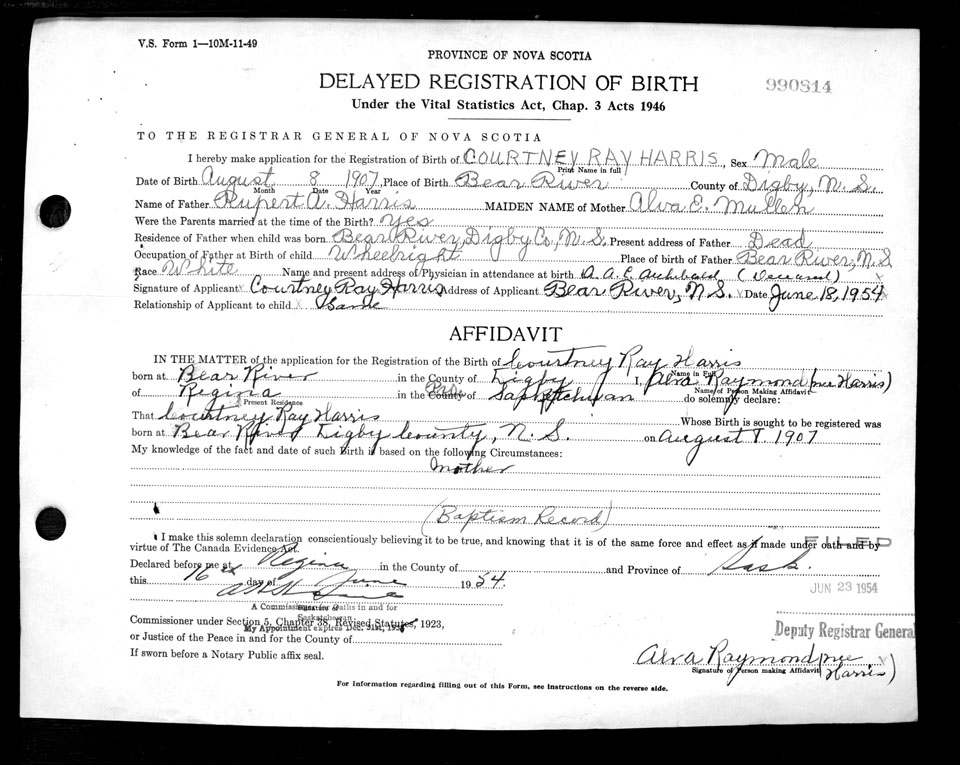 V.S. Form 1—10M-11-49
PROVINCE OF NOVA SCOTIA
DELAYED REGISTRATION OF BIRTH
990814
Under the Vital Statistics Act, Chap. 3 Acts 1946
TO THE REGISTRAR GENERAL OF NOVA SCOTIA
I hereby make application for the Registration of Birth of COURTNEY RAY HARRIS, Sex Male
Print Name in full
Date of Birth August 8 1907, Place of Birth Bear River County of Digby, N.S.
Month Date Year
Name of Father Rupert A. Harris MAIDEN NAME of Mother Alva E. Mullen
Were the Parents married at the time of the Birth? Yes
Residence of Father when child was born Bear River, Digby Co., N.S. Present address of Father Dead
Occupation of Father at Birth of child Wheelright Place of birth of Father Bear River, N.S
Race White Name and present address of Physician in attendance at birth A. A. E. Archibald (Deceased) x
Signature of Applicant x Courtney Ray Harris Address of Applicant Bear River, N.S. x Date June 18, 1954 x
Relationship of Applicant to child x Same
AFFIDAVIT
IN THE MATTER of the application for the Registration of the Birth of Courtney Ray Harris
Name in Full
born at Bear River in the County of Digby I, Alva Raymond (nee Harris)
Name of Person Making Affidavit
of Regina in the County Pro of Saskatchewan do solemnly declare:
Present Residence
That Courtney Ray Harris Whose Birth is sought to be registered was
born at Bear River Digby County, N.S. on August 8. 1907
My knowledge of the fact and date of such Birth is based on the following Circumstances:
Mother
(Baptism Record)
I make this solemn declaration conscientiously believing it to be true, and knowing that it is of the same force and effect as if made under oath and by
FILED
virtue of The Canada Evidence Act.
Declared before me at Regina in the County of and Province of Sask.
this 16th day of June 1954.
JUN 23 1954
A Commissioner for Oaths in and for
Saskatchewan
Commissioner under Section 5, Chapter 38, Revised Statutes, 1923,
My Appointment expires Dec. 31st, 195
Deputy Registrar General
or Justice of the Peace in and for the County of
If sworn before a Notary Public affix seal.
Alva Raymond (nee Harris) x
Signature of Person making Affidavit
For Information regarding filling out of this Form, see instructions on the reverse side.